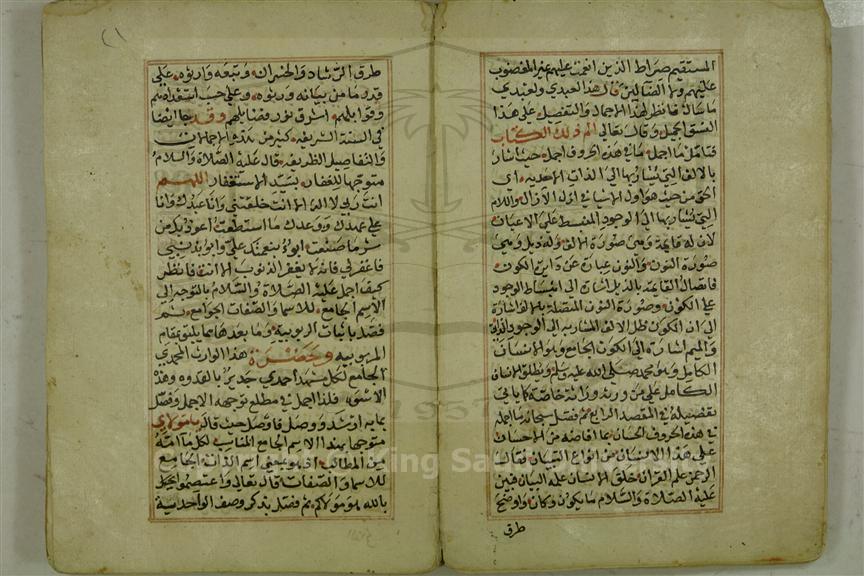 المستقيم صراط الذين انعمت عليهم غير المغضوب
عليهم ولا الضالين قال هذا لعبدي ولعبدي
ما سأله فانظر لهذا الاجمال والتفصيل على هذا
النسق الجميل وقال تعالى الم ذلك الكتاب
فتامل ما اجمل ما في هذه الحروف اجمل حيث اشار
بالالف التي يشار بها الى الذات الاحدية اي
الحق من حيث هو اول الاشيا في ازل الازال واللام
التي يشار بها الى الوجود المنبسط على الاعيان
لان له قائمة وهي صورة الالف وله ذيل وهي
صورة النون والنون عبارة عن دايرة الكون
فاتصال القائمة بالذيل اشارة الى انبساط الوجود
على الكون وصورة النون المتصلة بالالف اشارة
الى ان الكون ظل الالف المشار به الى الوجود
والميم اشارة الى الكون الجامع وهو الانسان
الكامل وهو محمد صلى الله عليه وسلم ويطلق الانسان
الكامل على من ورثه وراثة خاصة كما ياتي
تفصيله في المقصد الرابع ثم فصل سبحانه ما اجمله
في هذه الحروف الحسان بما افاضه من الاحسان
على هذا الانسان من انواع التبيان فقال
الرحمن علم القران خلق الانسان علمه البيان فبين
عليه الصلاة والسلام ما يكون وكان واوضح
طرق
طرق الرشاد والخسران وتبعه وارثوه على
قدر ما من بيانه ورثوه وعلى حسب استعدادهم
وقوابلهم اشرق نور فضايلهم وقد جا ايضا
في السنة الشريفة كثير من هذه الاجمالات
والتفاصيل الظريفة قال عليه الصلاة والسلام
متوجها للغفار بسيد الاستغفار اللهم
انت ربي لا اله الا انت خلقتني وانا عبدك وانا
على عهدك ووعدك ما استطعت اعوذ بك من
شر ما صنعت ابوء بنعمتك علي وابوء بذنبي
فاغفر لي فانه لا يغفر الذنوب الا انت فانظر
كيف اجمل عليه الصلاة والسلام بالتوجه الى
الاسم الجامع للاسما والصفات الجوامع ثم
فصل باثبات الربوبية وما بعدها مما يليق بمقام
المربوبيه وحضرة هذا الوارث المحمدي
الجامع لكل مشهد احمدي جدير بالقدوه وهذه
الاسوه فلذا اجمل في مطلع توجهه الاجمل وفصل
بما به ارشد ووصل فاوصل حيث قال يا مولاي
متوجها بهذا الاسم الجامع المناسب لكل ما امه
من المطالب اذ هو بمعنى اسم الذات الجامع
للاسما والصفات قال تعالى واعتصموا
بالله هو مولاكم ثم فصل بذكر وصف الواحدية
King Saud University
1957